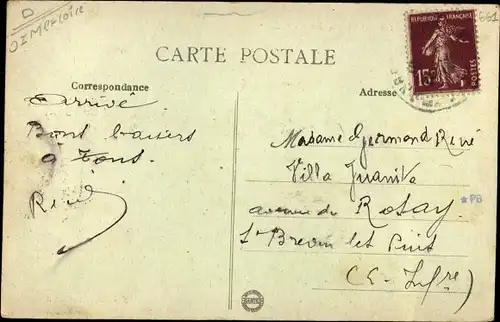 D
OIMetLoire
661
CARTE POSTALE
REPUBLIQUE FRANÇAISE
15c
POSTES
Correspondance
Adresse
Arrivé
Bons baisers
à Tous.
René
Madame Germond René
Villa Juanita
avenue du Rosay.
St Brevin les Pins
(L. Infre)
★PB